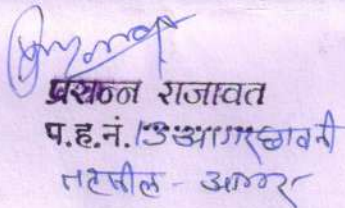 प्रसन्न राजावत
प.ह.नं. 13 आगर छावनी
तहसील - आगर